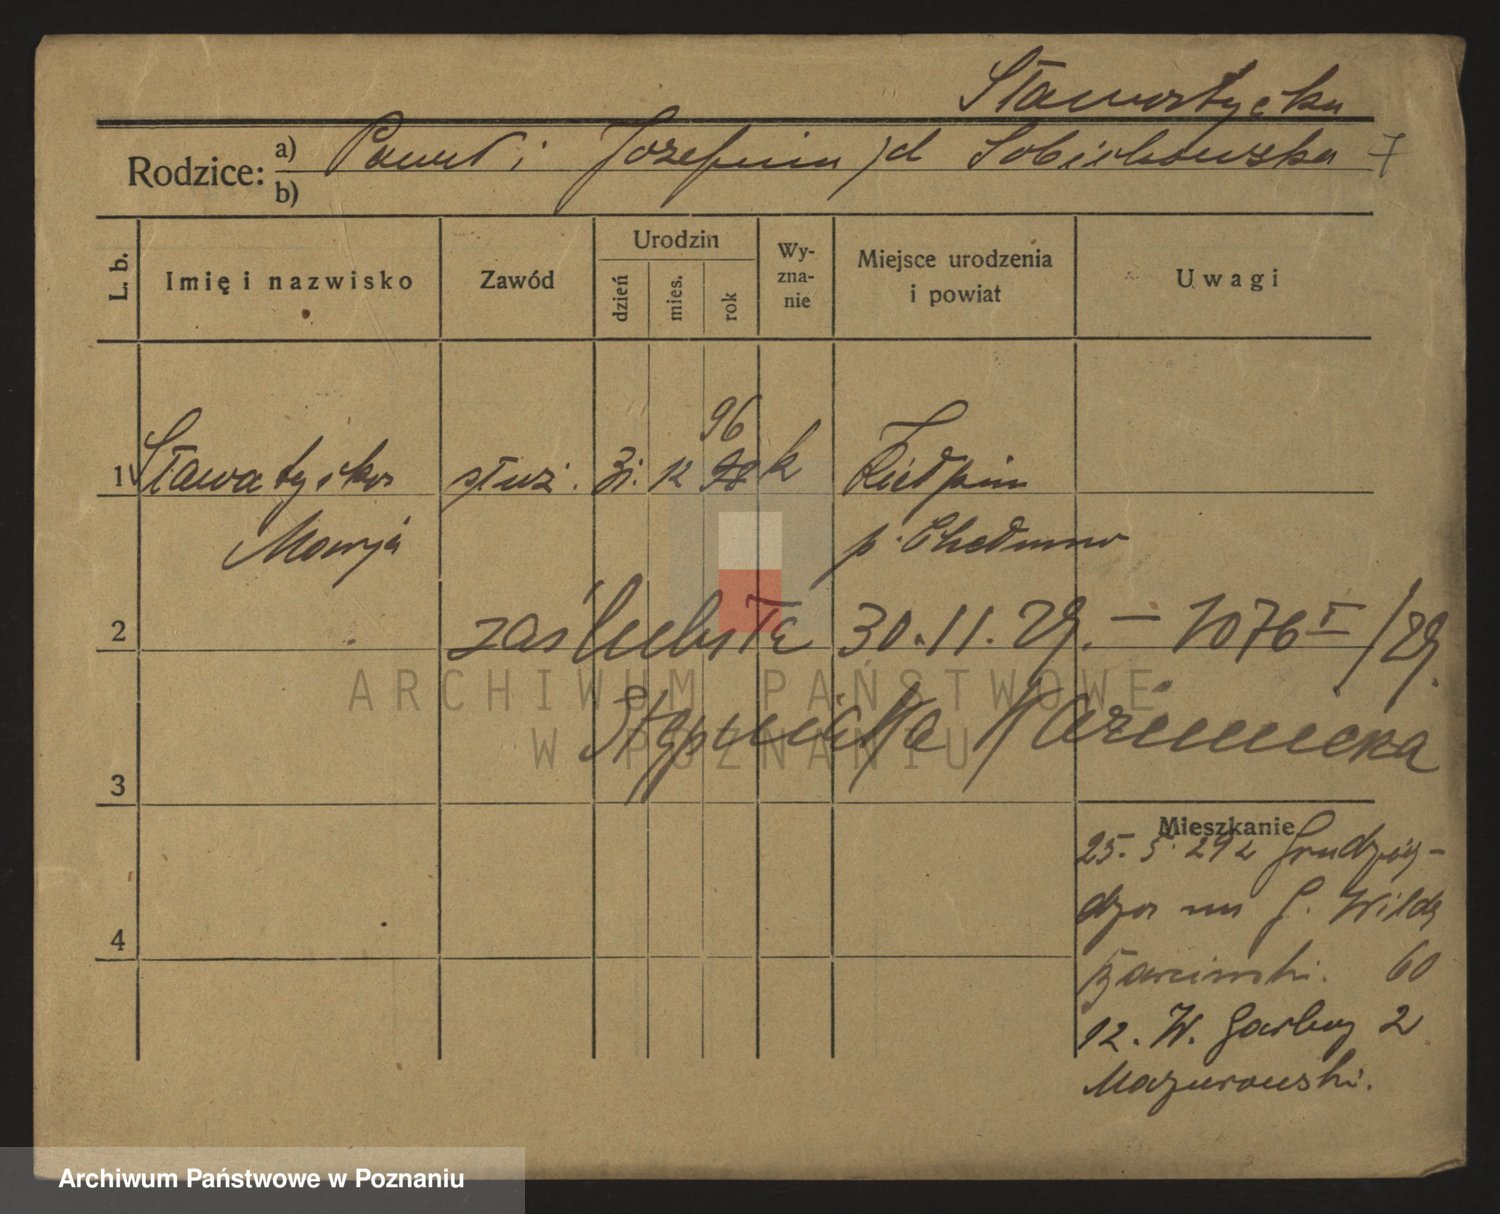 Sławatycka
Rodzice: a) Paweł i Jozefina /d Sobichowska
b)
L. b.
Imię i nazwisko
Zawód
Urodzin
dzień
mies.
rok
Wy-
zna-
nie
Miejsce urodzenia
i powiat
Uwagi
96
1 Sławatycka służ. 31. 12 98 k Kiełpin
Marja p. Chełmno
2 zaślubiła 30.11.29. — 1076 I /29.
Stypniaka Kazimierza
3
Mieszkanie
25. 5. 29 z Grudzią-
dza na G. Wildę
60
4
12. W. Garbary 2
Mazurowski.
ARCHIWUM PAŃSTWOWE
W POZNANIU
Archiwum Państwowe w Poznaniu